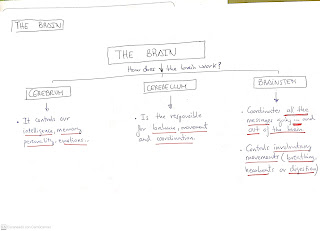 THE BRAIN
THE BRAIN
How does the brain work?
CEREBRUM
CEREBELLUM
BRAINSTEM
• It controls our
intelligence, memory,
personality, emotions...
• Is the responsible
for balance, movement
and coordination.
• Coordinates all the
messages going in and
out of the brain.
• Controls involuntary
movements (breathing,
heartbeats or digestion)